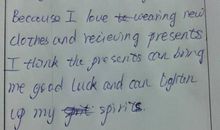 Because I love wearing new
clothes and recieving presents
I think the presents can bring
me good luck and can lighten
up my spirits.